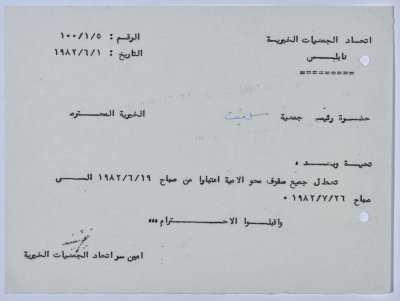 اتحاد الجمعيات الخيرية
نابلس
الرقم : ١٠٠/١/٥
التاريخ : ١٩٨٢/٦/١
حضرة رئيس جمعية سلفيت الخيرية المحترم
تحية وبعد ،
تعطل جميع صفوف محو الامية اعتبارا من صباح ١٩٨٢/٦/١٩ الى
صباح ١٩٨٢/٧/٢٦ ٠
واقبلوا الاحترام ،،،
امين سر اتحاد الجمعيات الخيرية